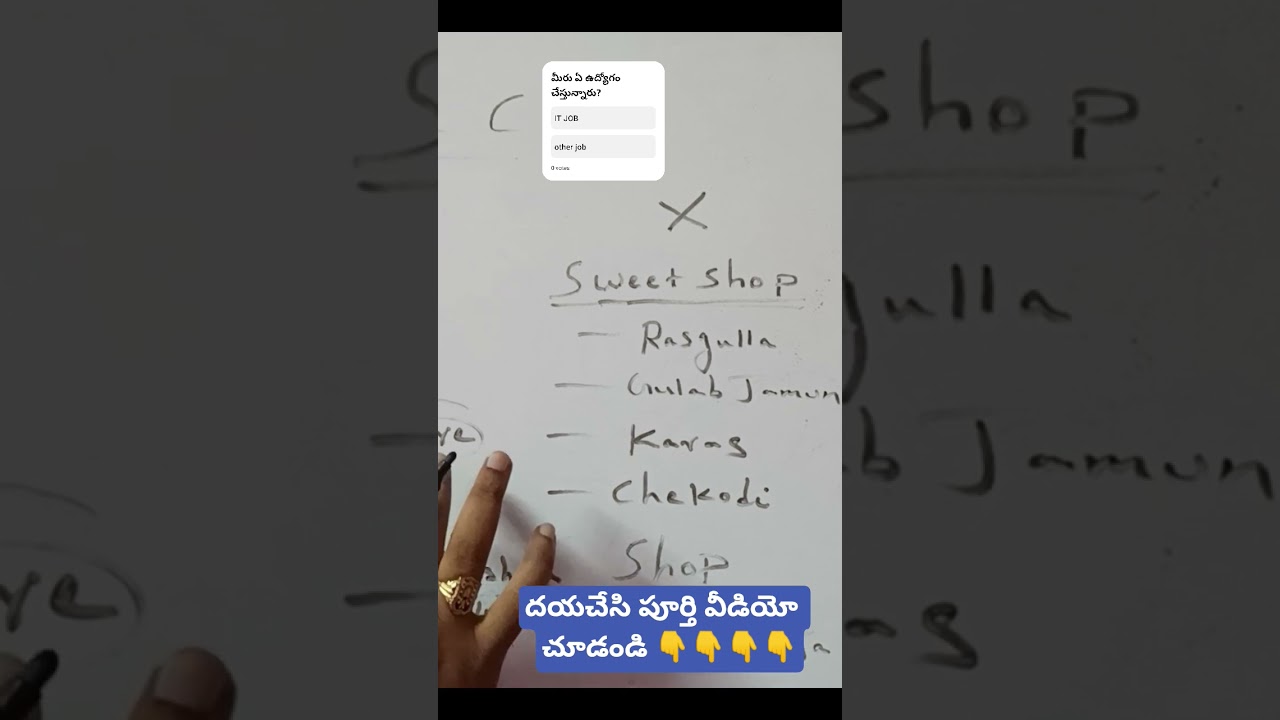 మీరు ఏ ఉద్యోగం
చేస్తున్నారు?
IT JOB
other job
0 votes
C
X
Sweet Shop
— Rasgulla
— Gulab Jamun
— Karas
— Chekodi
Shop
దయచేసి పూర్తి వీడియో
చూడండి 👇👇👇👇